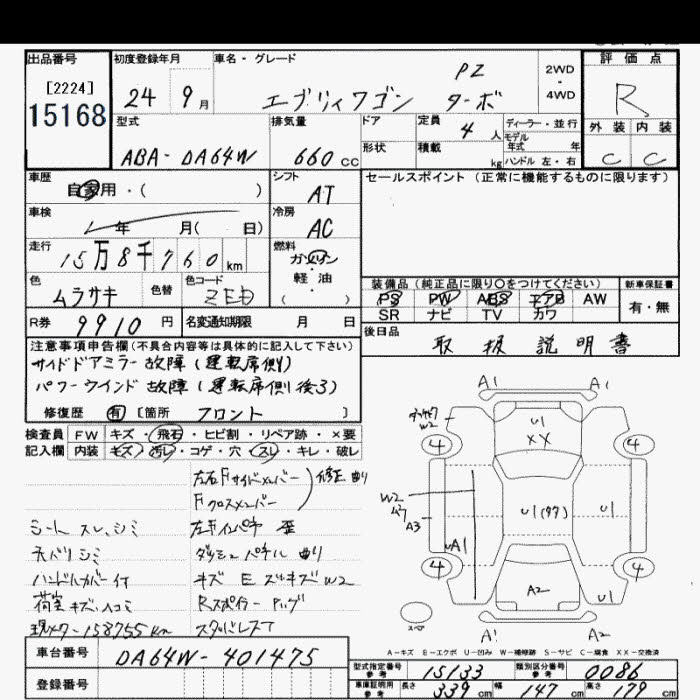 出品番号
[2224]
15168
初度登録年月
24 9月
車名・グレード
エブリィワゴン ターボ PZ
2WD・4WD
評価点
R
外装 内装
C C
型式
ABA-DA64W
排気量
660cc
ドア
形状
定員 4人
積載 kg
ディーラー・並行
モデル年式 年
ハンドル 左・右
車歴
自家用・( )
シフト
AT
セールスポイント (正常に機能するものに限ります)
車検
年 月( 日)
冷房
AC
走行
15万8千760km
燃料
ガソリン・軽油・( )
色
ムラサキ
色替
色コード
ZED
装備品 (純正品に限り○をつけてください)
PS PW ABS エアB AW
SR ナビ TV カワ
新車保証書
有・無
R券
9910円
名変通知期限 月 日
後日品
取扱説明書
注意事項申告欄(不具合内容等は具体的に記入して下さい)
サイドドアミラー故障(運転席側)
パワーウインド故障(運転席側後ろ)
修復歴 有 [箇所 フロント ]
検査員記入欄
FW キズ・飛石・ヒビ割・リペア跡・×要
内装 キズ・汚レ・コゲ・穴・スレ・キレ・破レ
左右Fサイドメンバー
Fクロスメンバー
修正 曲り
シート スレ,シミ
左Fインパネ 歪
天バリ シミ
ダッシュパネル 曲り
ハンドルカバー付
荷室 キズ,ヘコミ
Rスポイラー
158755km
スタッドレス
A1 A1
W2
U1
XX
4 4
W2
A3
U1(97)
U1
UA1
4 4
A2
U1
スペア
A1 A2
A-キズ E-エクボ U-凹み W-補修跡 S-サビ C-腐食 XX-交換済
車台番号
DA64W-401475
登録番号
型式指定番号 参考
15133
類別区分番号 参考
0086
車庫証明用 参考
長さ 339cm
幅 147cm
高さ 179cm